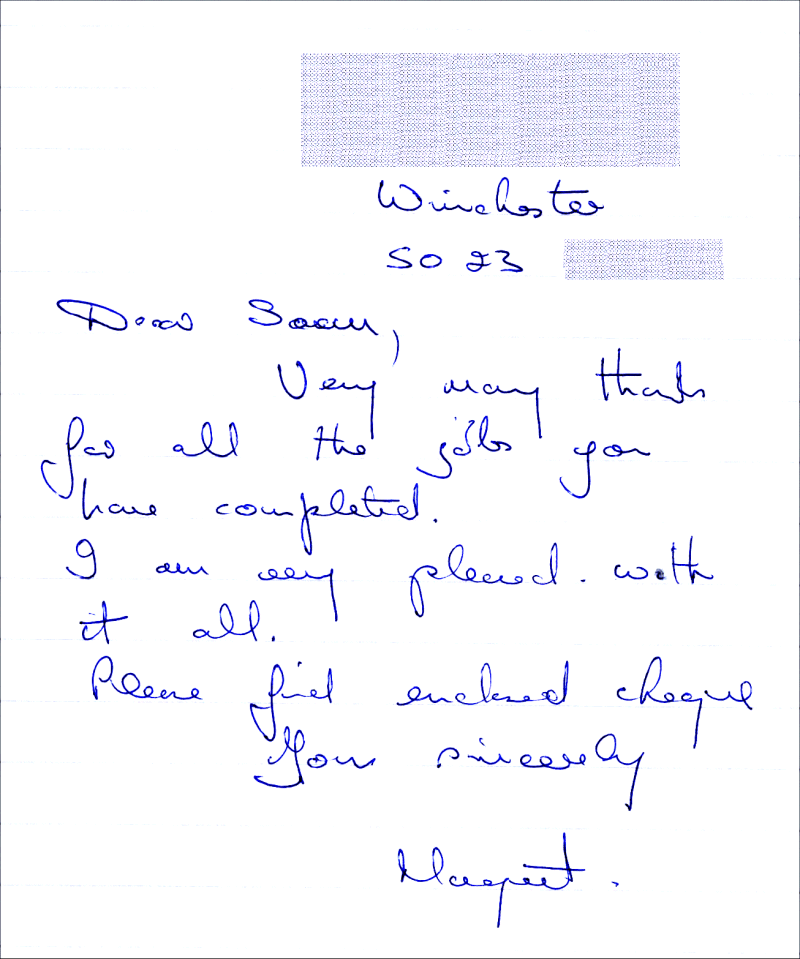 Winchester
SO 23
Dear Sean,
Very many thanks
for all the jobs you
have completed.
I am very pleased. with
it all.
Please find enclosed cheque
Yours sincerely
Margaret.